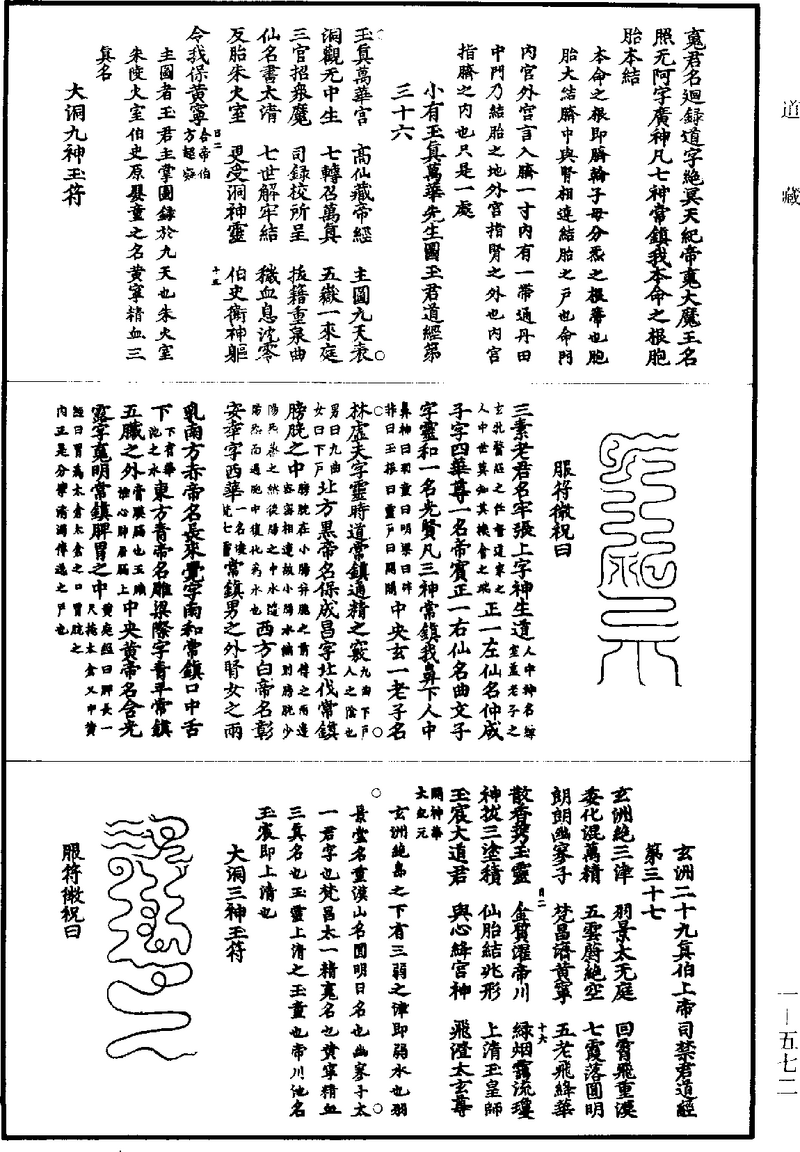 道藏
魂君名迴録道字絶冥天紀帝魂大魔王名
照无阿字廣神凡七神常鎮我本命之根胞
胎本結
本命之根即臍輪子母分炁之根蔕也胞
胎大結臍中與腎相連結胎之戶也命門
内宫外宫言入臍一寸内有一帶通丹田
中門乃結胎之地外宫指腎之外也内宫
指臍之内也只是一處
小有玉真萬華先生圖玉君道經第
三十六
玉真萬華宫 高仙藏帝經 主圖九天衮
洞觀无中生 七轉召萬真 五嶽一來庭
三官招衆魔 司録校所呈 拔籍重泉曲
仙名書太清 七世解牢結 穢血息沈零
反胎朱火室 更受洞神靈 伯史衛神軀
令我保黄寧
主圖者玉君主掌圖録於九天也朱火室
朱陵火室伯史原嬰童之名黄寧精血三
真名
大洞九神玉符
服符微祝曰
三素老君名牢張上字神生道
正一左仙名仲成
子字四華尊一名帝賓正一右仙名曲文子
字靈和一名光賢凡三神常鎮我鼻下人中
中央玄一老子名
林虚夫字靈時道常鎮通精之竅
北方黑帝名保成昌字北伐常鎮
膀胱之中
西方白帝名彰
安幸字西華
常鎮男之外腎女之兩
乳南方赤帝名長來覺字南和常鎮口中舌
下
東方青帝名雕梁際字青平常鎮
五臟之外
中央黄帝名含光
露字魂明常鎮脾胃之中
玄洲二十九真伯上帝司禁君道經
第三十七
玄洲絶三津 羽景太无庭 回霄飛重漠
委化混萬精 五雲蔚絶空 七霞落圓明
朗朗幽寥子 梵昌語黄寧 五老飛絳華
散香携玉靈 金質濯帝川 緑烟靄流瓊
神拔三塗積 仙胎結兆形 上清玉皇師
玉宸大道君 與心絳宫神 飛澄太玄尊
玄洲絶島之下有三弱之津即弱水也羽
景堂名重漠山名圓明日名也幽寥子太
一君字也梵昌太一精魂名也黄寧精血
三真名也玉靈上清之玉童也帝川池名
玉宸即上清也
大洞三神玉符
服符微祝曰
一—五七二